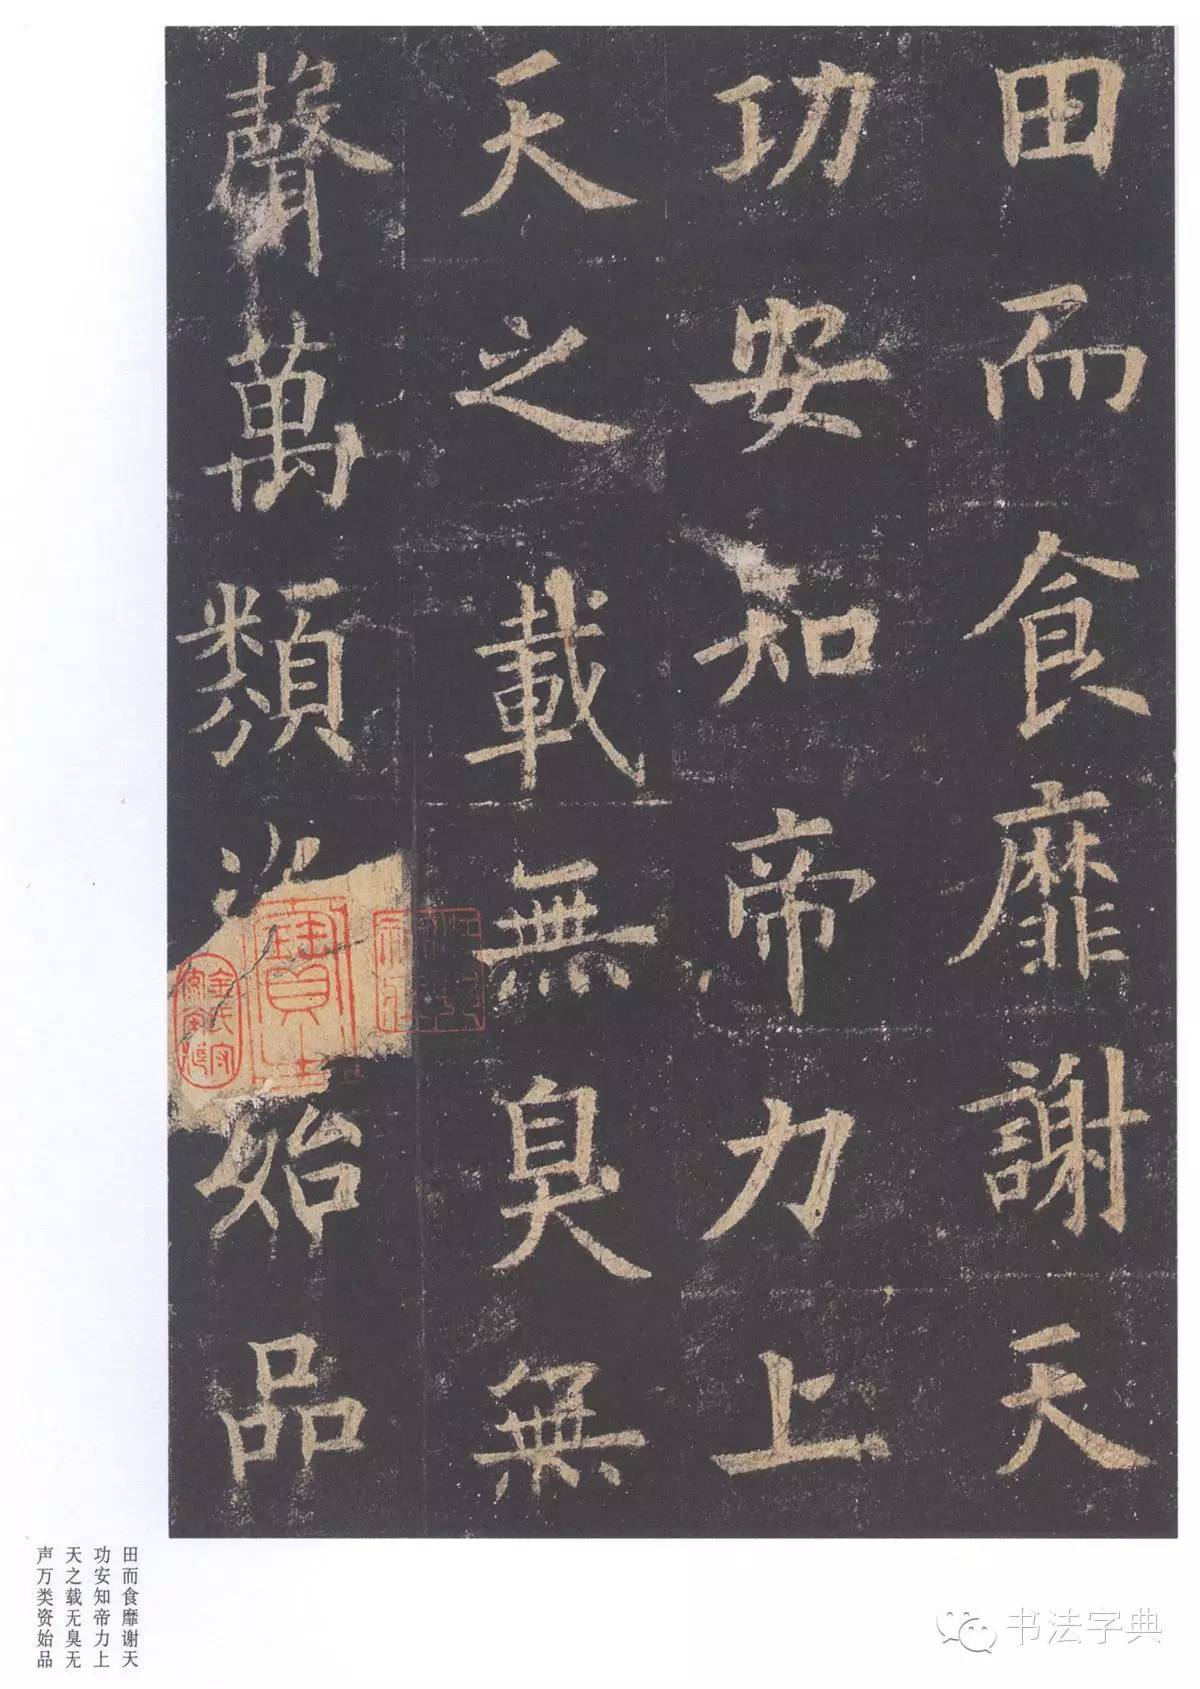 田而食靡謝天
功安知帝力上
天之載無臭無
聲萬類始品
田而食靡谢天
功安知帝力上
天之载无臭无
声万类资始品
书法字典